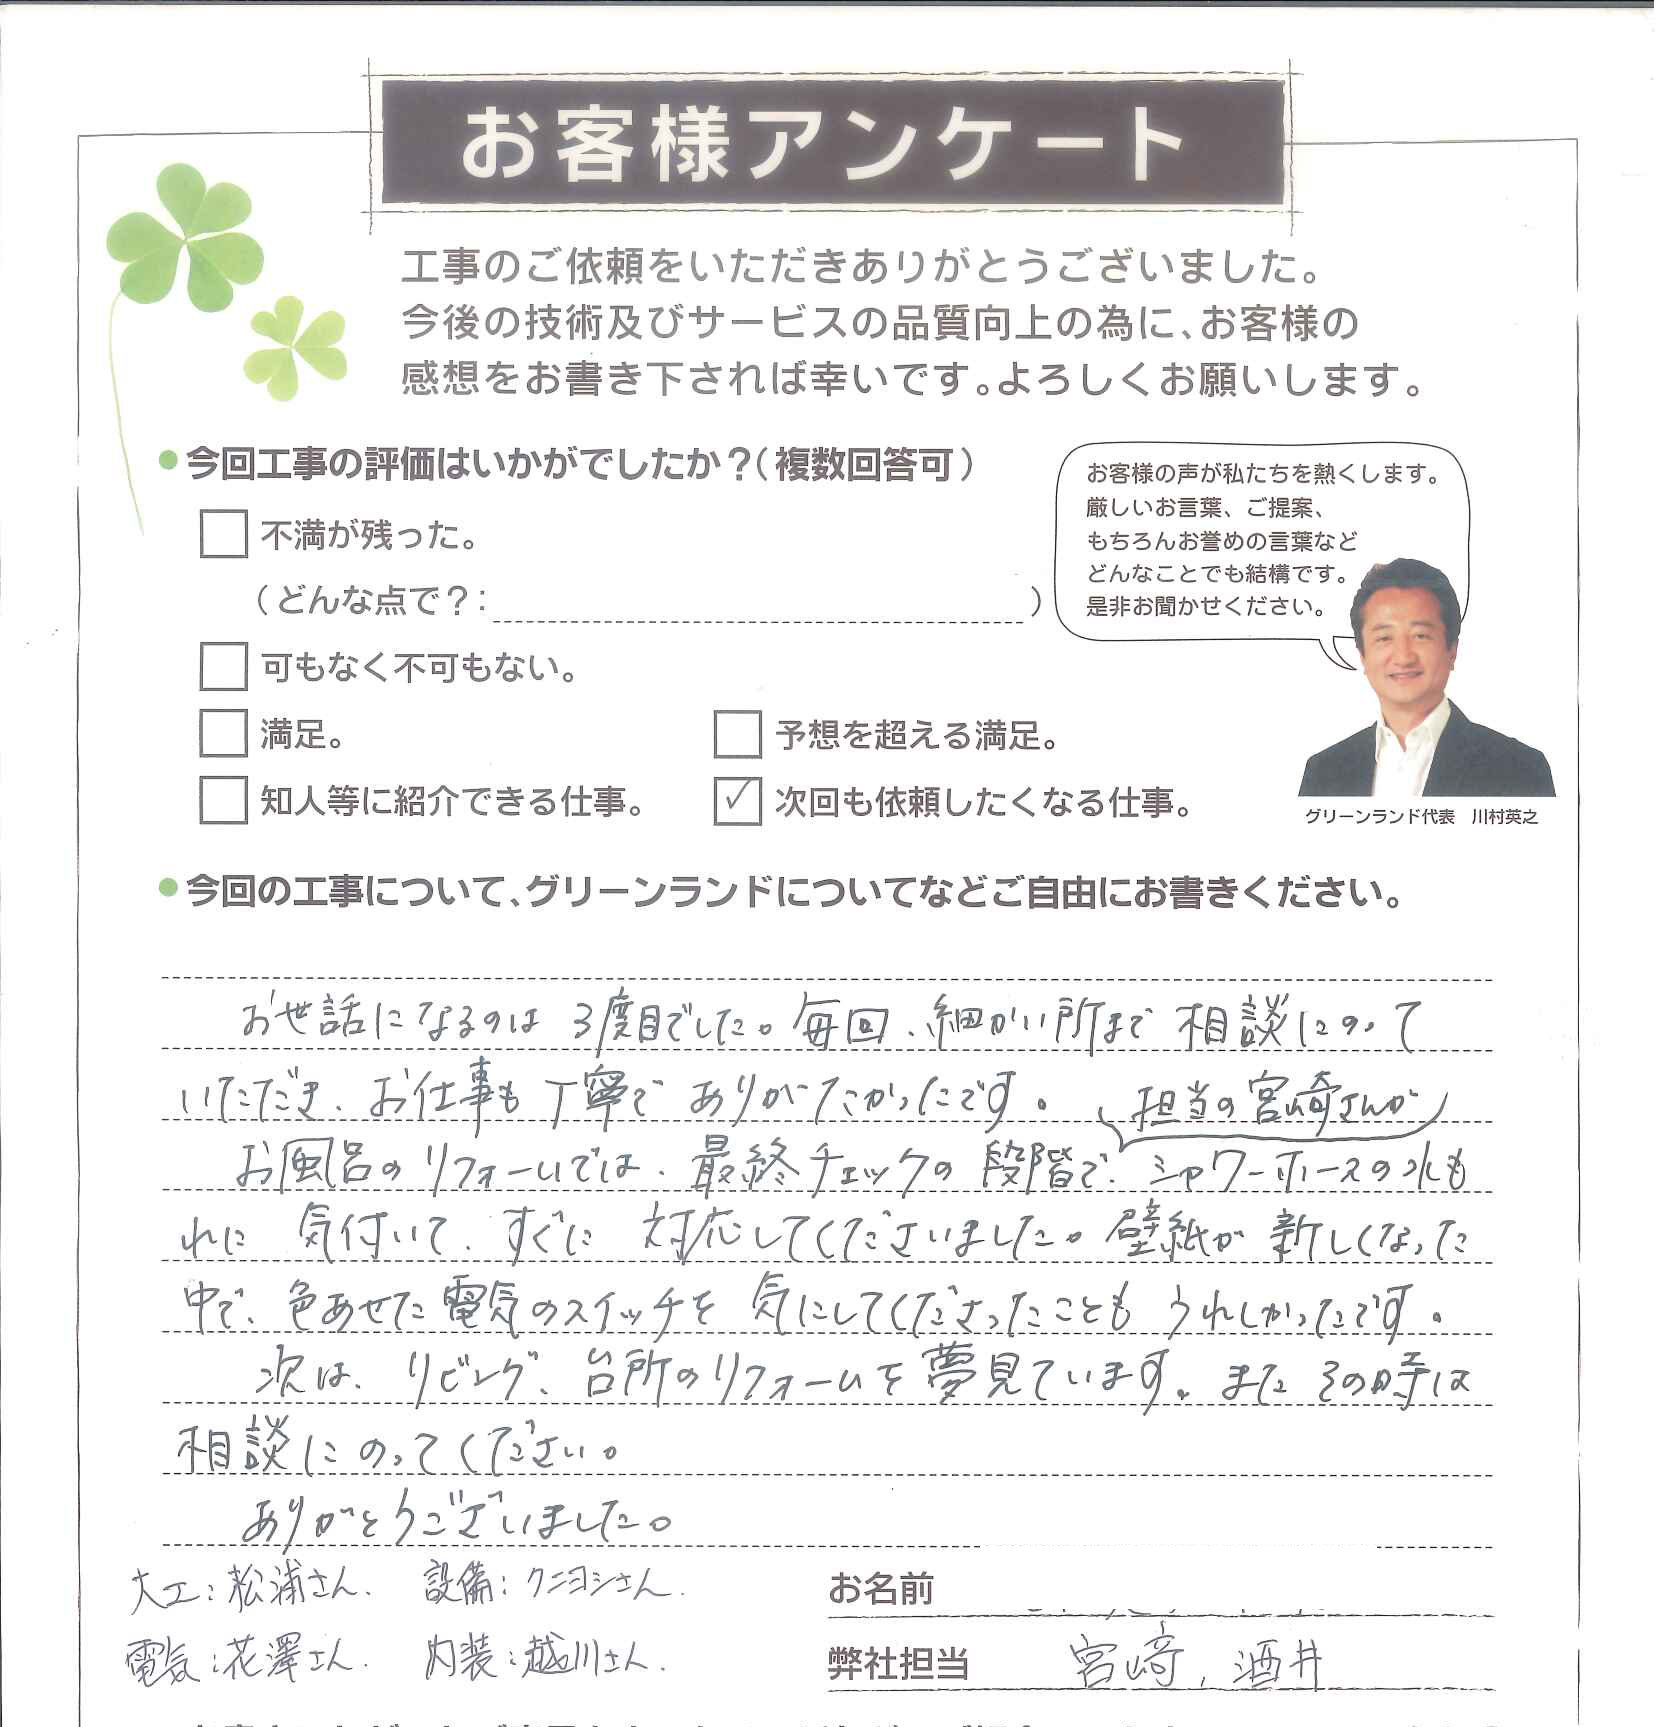 お客様アンケート
工事のご依頼をいただきありがとうございました。
今後の技術及びサービスの品質向上の為に、お客様の
感想をお書き下されば幸いです。よろしくお願いします。
今回工事の評価はいかがでしたか？（複数回答可）
不満が残った。
（どんな点で？：　）
可もなく不可もない。
満足。
予想を超える満足。
知人等に紹介できる仕事。
✓ 次回も依頼したくなる仕事。
お客様の声が私たちを熱くします。
厳しいお言葉、ご提案、
もちろんお誉めの言葉など
どんなことでも結構です。
是非お聞かせください。
グリーンランド代表　川村英之
今回の工事について、グリーンランドについてなどご自由にお書きください。
お世話になるのは3度目でした。毎回、細かい所まで相談にのって
いただき、お仕事も丁寧でありがたかったです。
担当の宮崎さんが
お風呂のリフォームでは、最終チェックの段階で、シャワーホースの水も
れに気付いて、すぐに対応してくださいました。壁紙が新しくなった
中で、色あせた電気のスイッチを気にしてくださったこともうれしかったです。
次は、リビング、台所のリフォームを夢見ています。またその時は
相談にのってください。
ありがとうございました。
大工：松浦さん．　設備：クニヨシさん．
電気：花澤さん．　内装：越川さん．
お名前
弊社担当　宮﨑，酒井